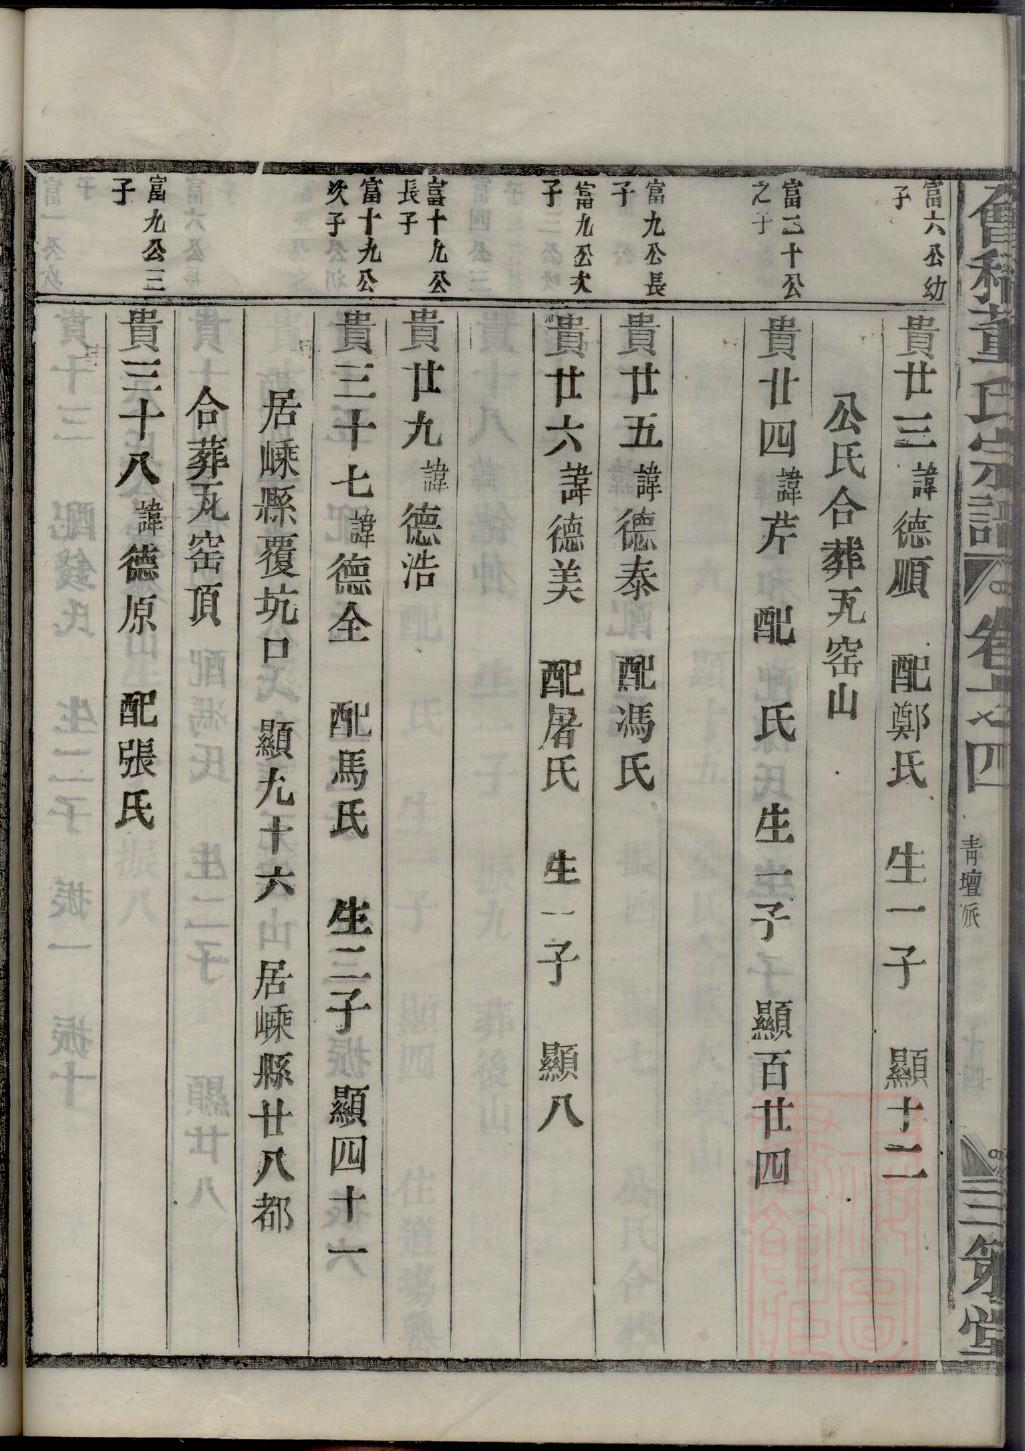 會稽董氏宗譜 卷十之四 青壇派 三策堂
富六公幼子
貴廿三諱德順 配鄭氏 生一子 顯十二
公氏合葬瓦窑山
富三十公之子
貴廿四諱芹 配 氏 生一子 顯百廿四
富九公長子
貴廿五諱德泰 配馮氏
富九公次子
貴廿六諱德美 配屠氏 生一子 顯八
富十九公長子
貴廿九諱德浩
富十九公次子
貴三十七諱德全 配馬氏 生二子 顯四十一
居嵊縣覆坑口 顯九十六 居嵊縣廿八都
合葬瓦窑頂
富九公三子
貴三十八諱德原 配張氏